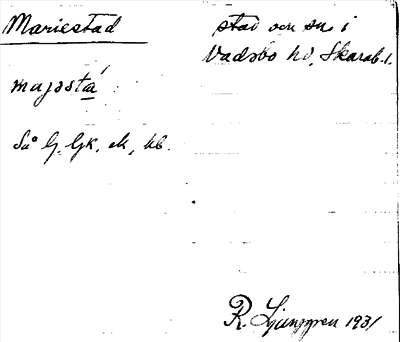 Mariestad
stad och sn i
Vadsbo hd, Skarab. l.
majəstá
Så G. Gk. ek, hb.
R. Ljunggren 1931